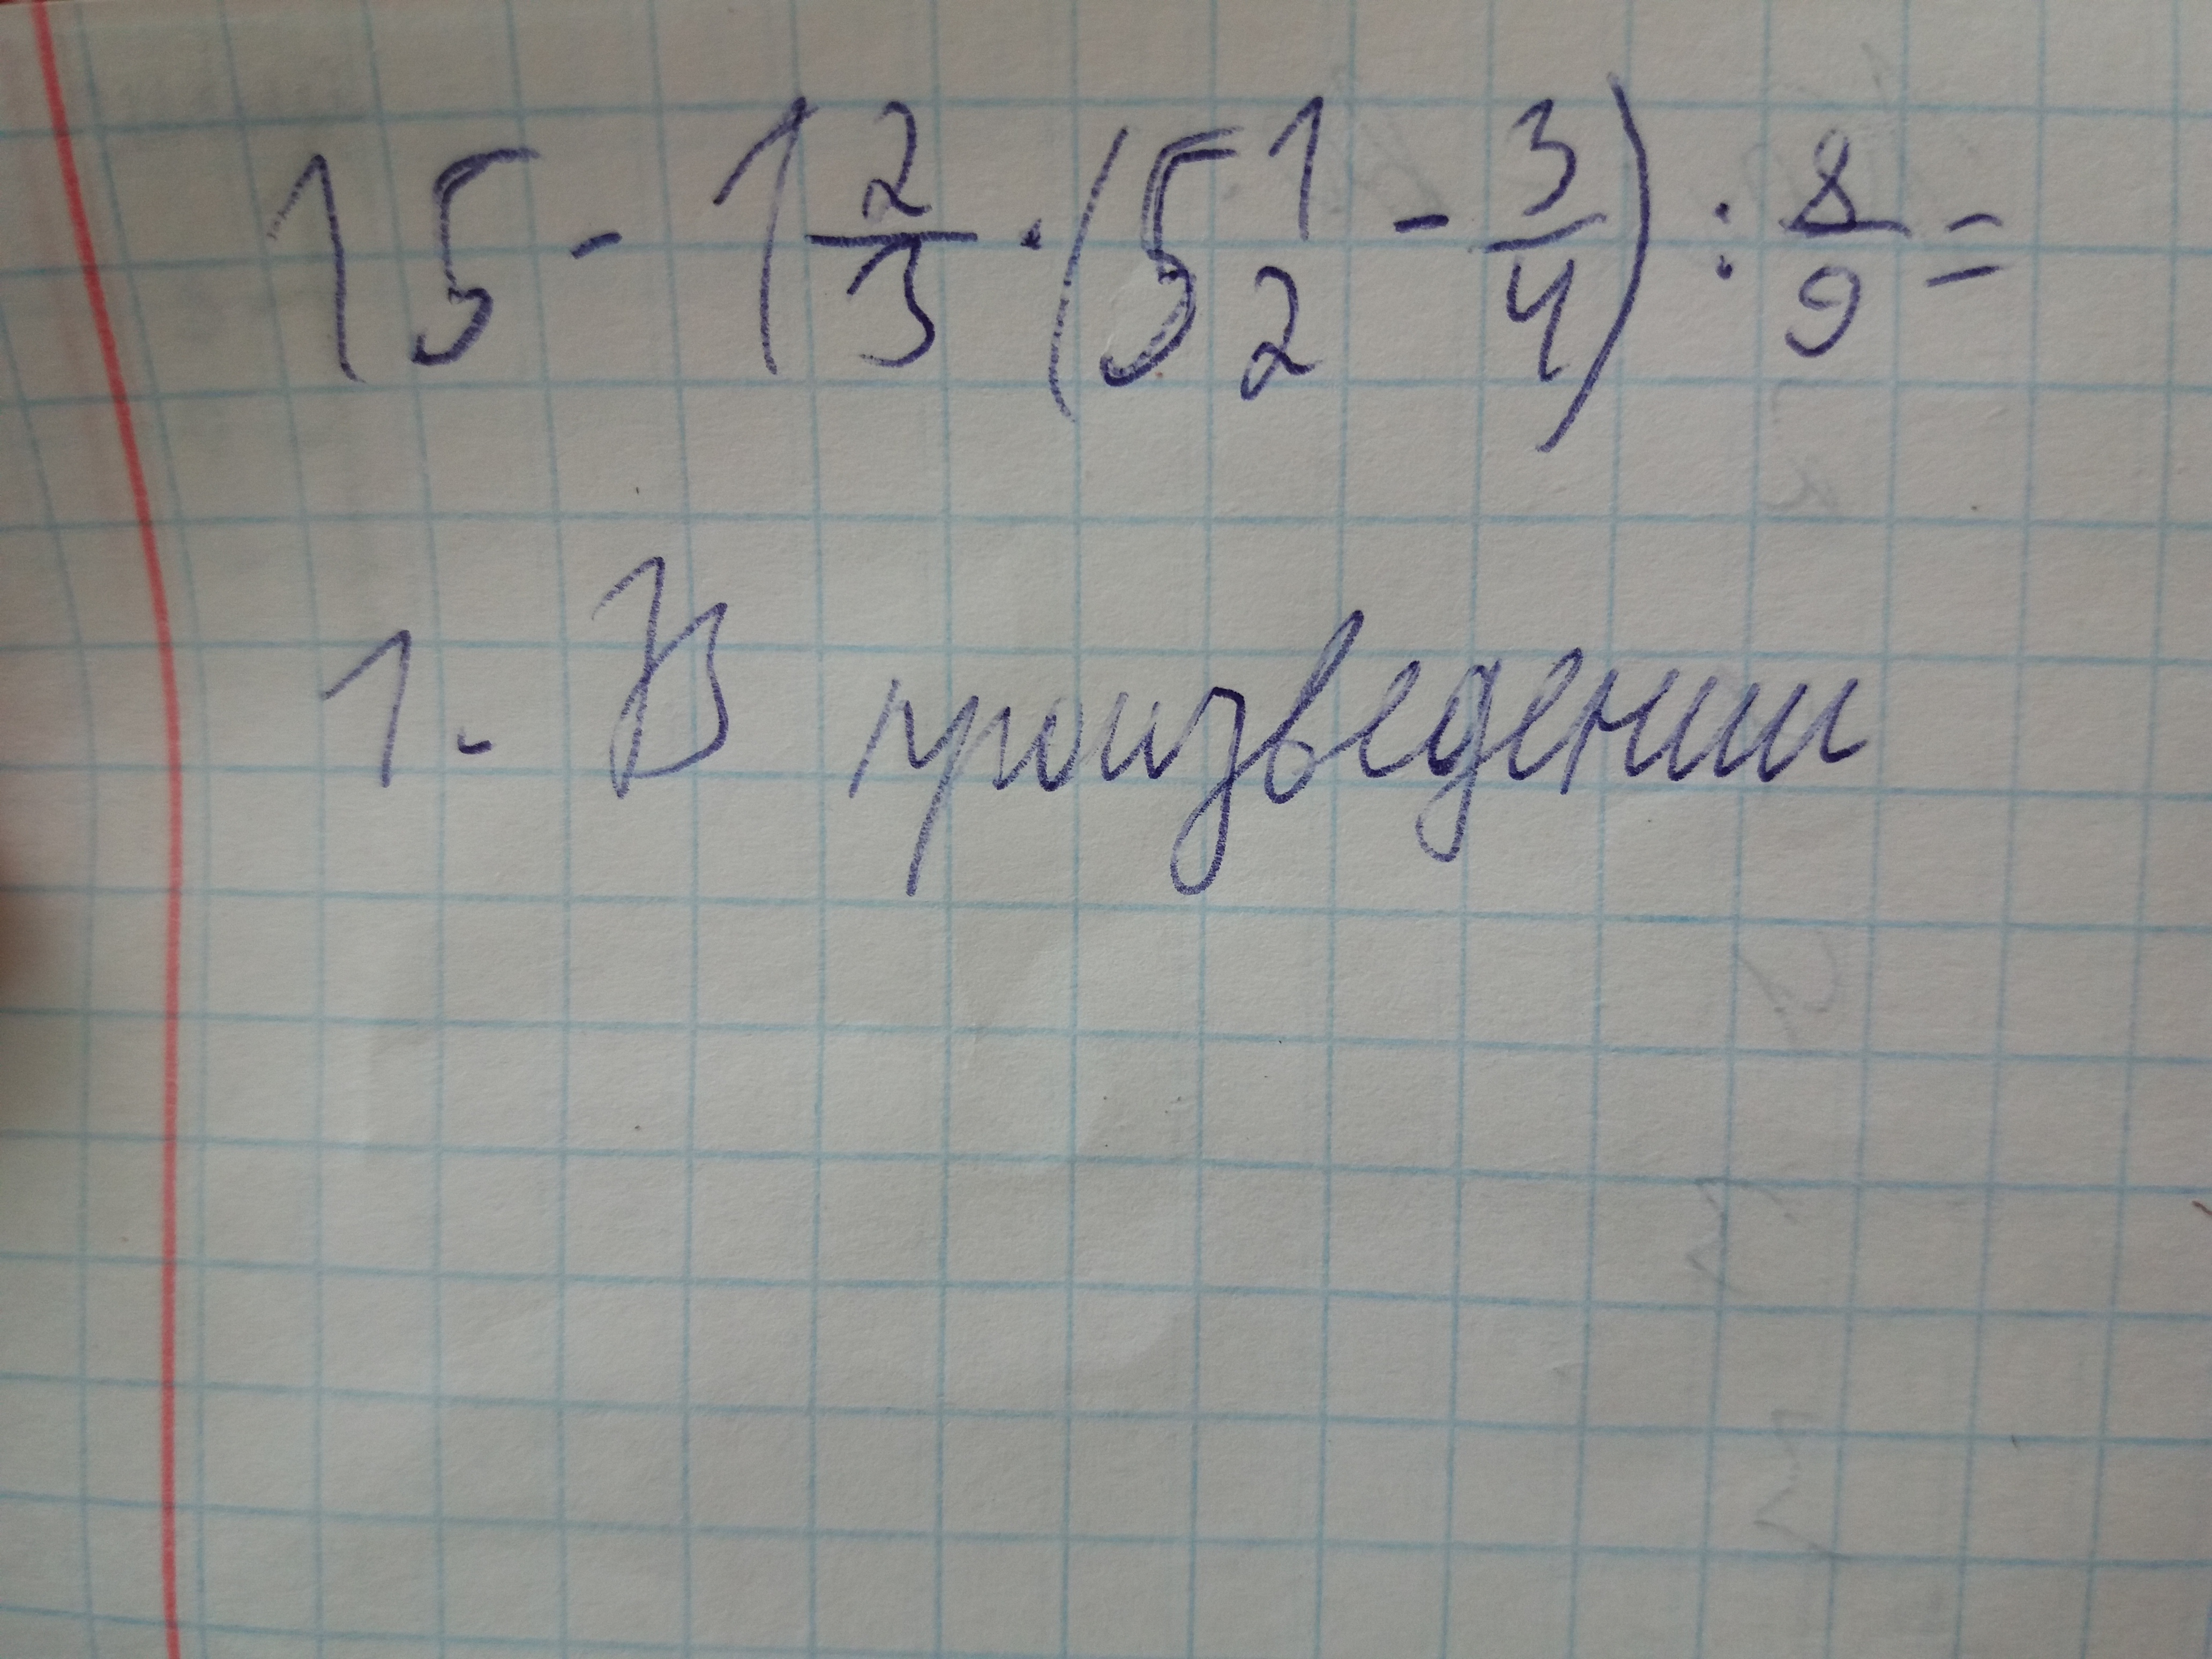 15 - 1 2/3 · (5 1/2 - 3/4) : 8/9 =
1. В произведении